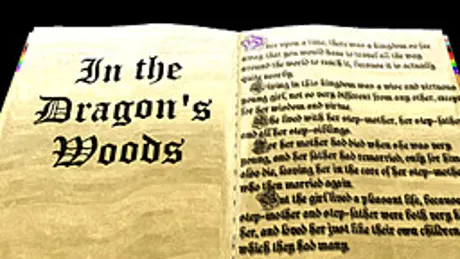 In the
Dragon's
Woods
Once upon a time, there was a kingdom so far
away, that you would have to travel all the way
around the world to reach it, because it is actually
quite nearby.
Living in this kingdom was a wise and virtuous
young girl, not so very different from any other, except
for her wisdom and virtue.
She lived with her step-mother, her step-father
and all her step-siblings.
For her mother had died when she was very
young, and her father had remarried, only for him
also die, leaving her in the care of her step-mother
who then married again.
But the girl lived a pleasant life, because
step-mother and step-father were both very
her, and loved her just like their own children
which they had many.